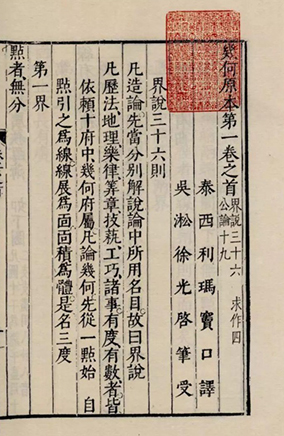 幾何原本第一卷之首 界說三十六 公論十九 求作四
泰西利瑪竇口譯
吳淞徐光啓筆受
界說三十六則
凡造論先當分別解說論中所用名目故曰界說
凡歷法地理樂律筭章技藝工巧諸事有度有數者皆
依賴十府中幾何府屬凡論幾何先從一點始自
點引之為線線展為面面積為體是名三度
第一界
點者無分